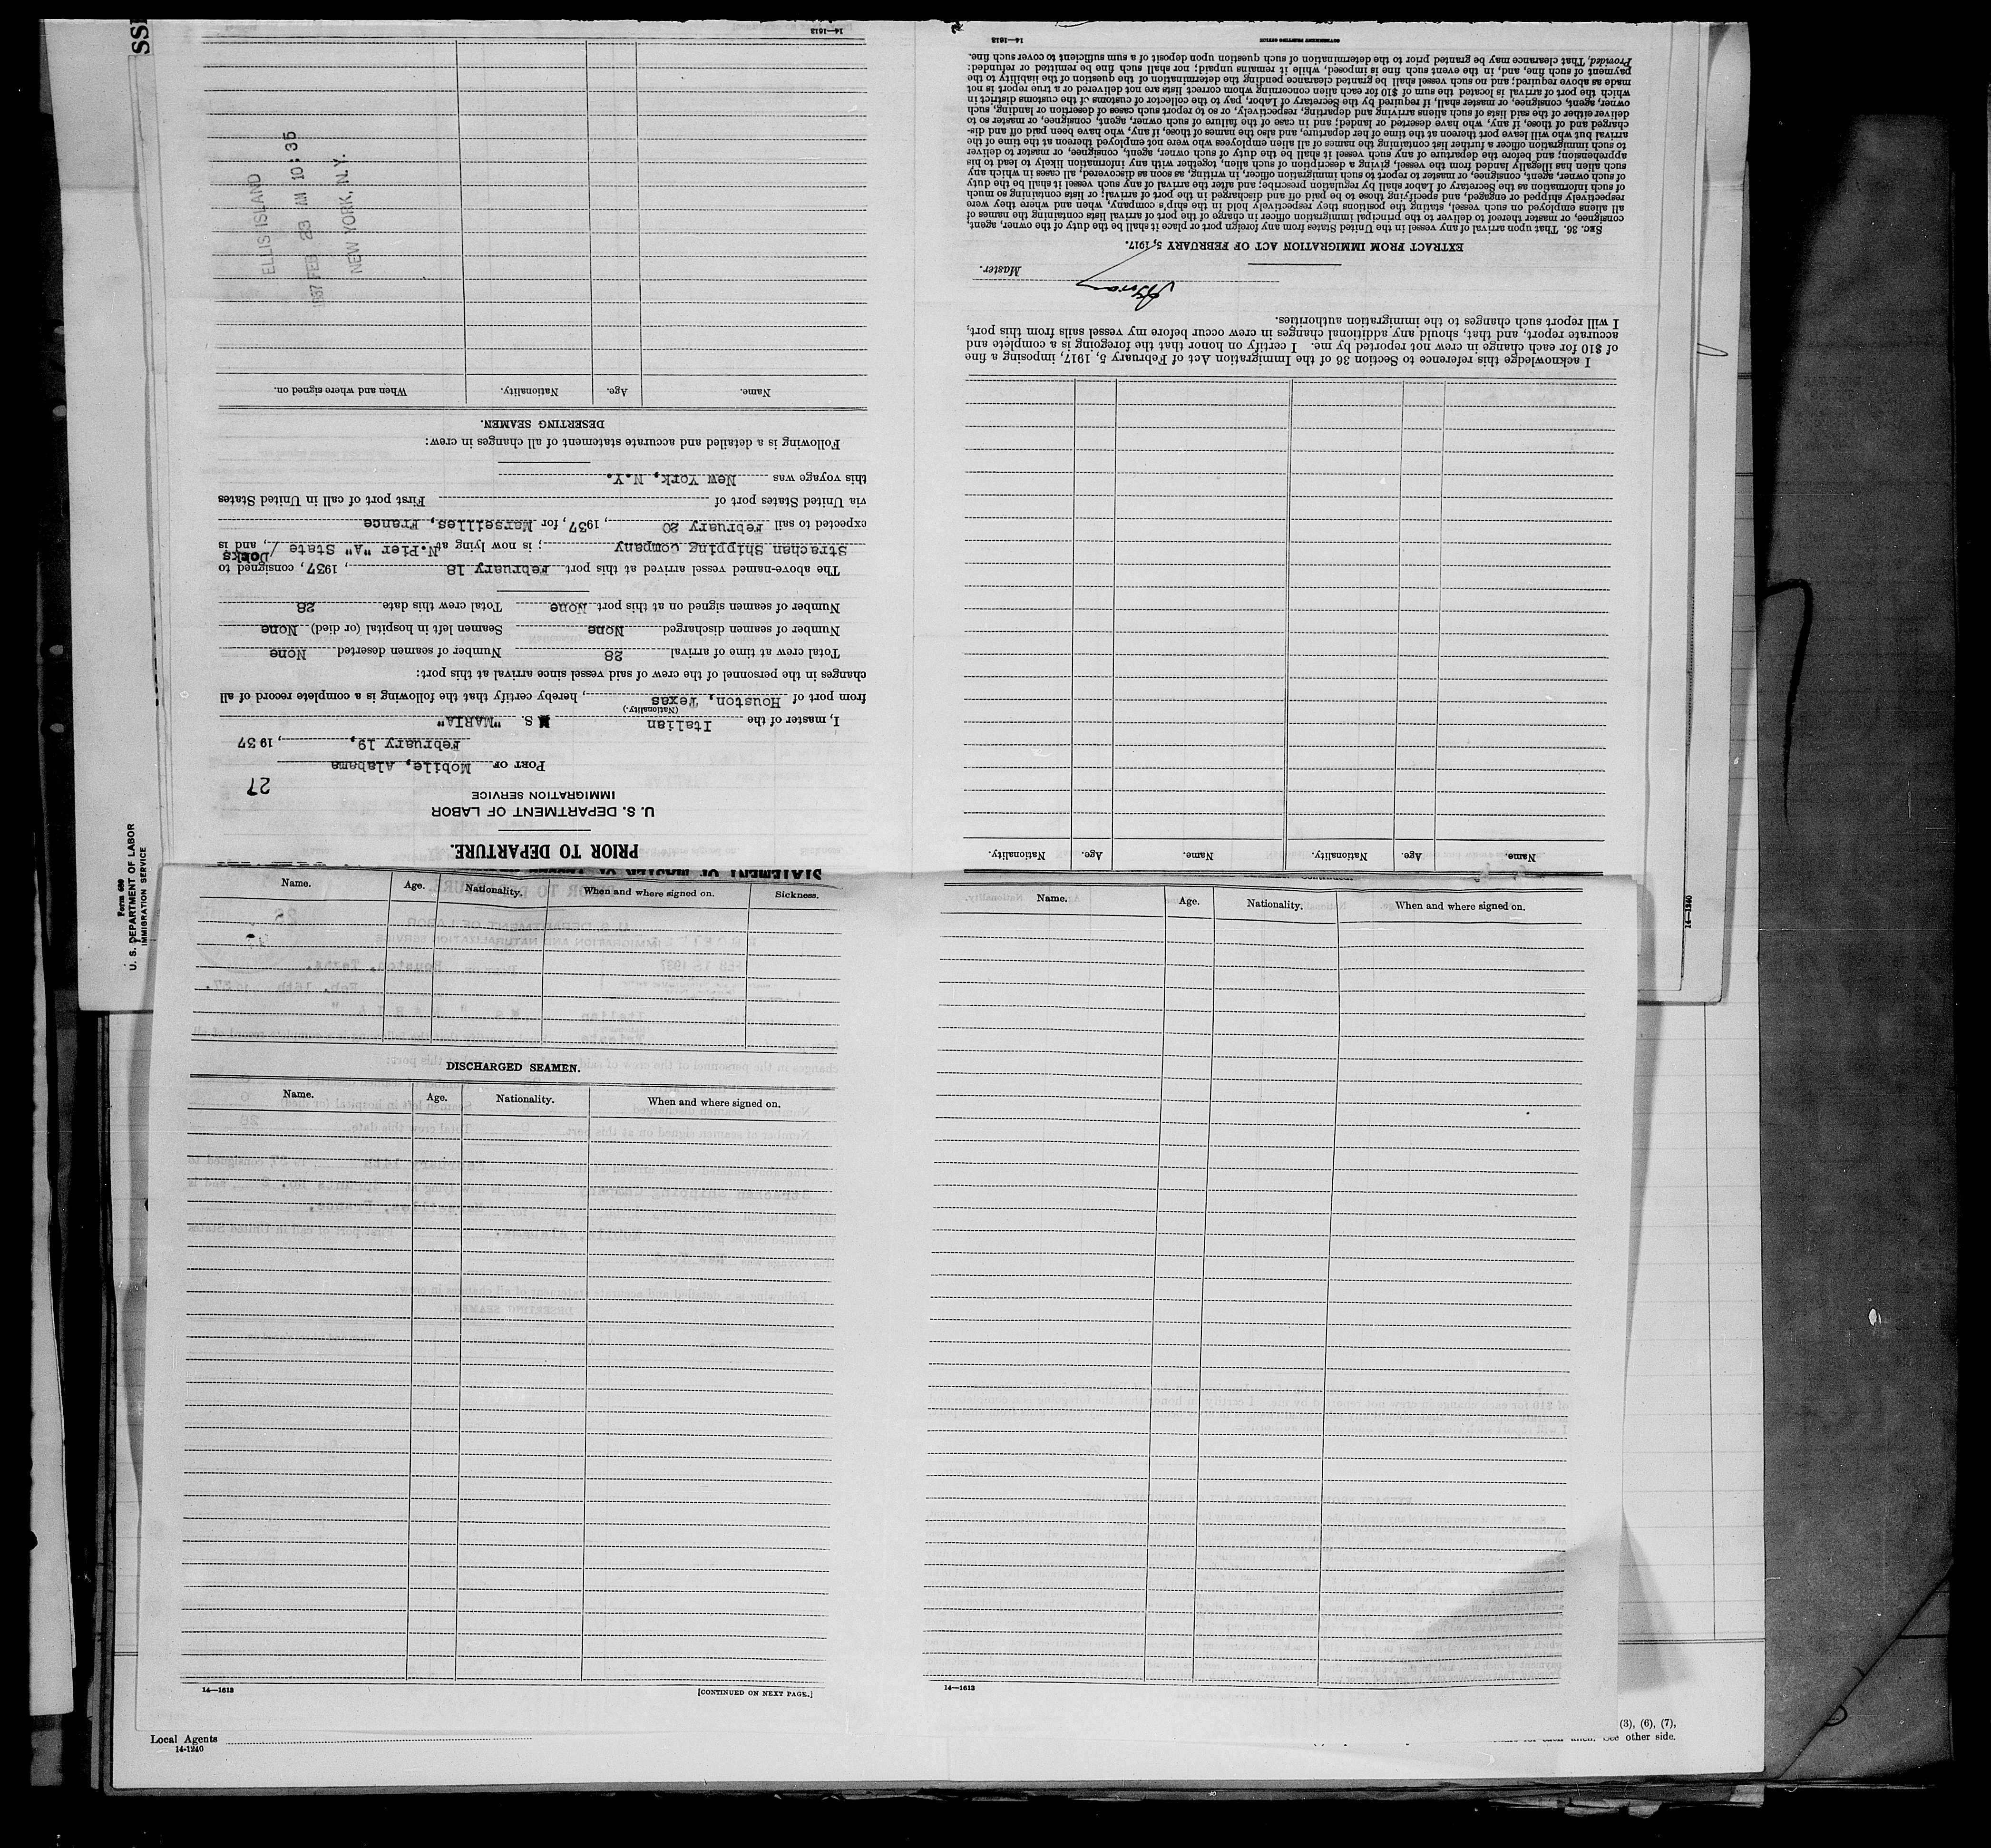 STATEMENT OF MASTER OF VESSEL
PRIOR TO DEPARTURE.
U. S. DEPARTMENT OF LABOR
IMMIGRATION SERVICE
27
PORT OF Mobile, Alabama
February 19, , 1937
I, master of the Italian M S. "MARIA"
(Nationality.)
from port of Houston, Texas , hereby certify that the following is a complete record of all
changes in the personnel of the crew of said vessel since arrival at this port:
Total crew at time of arrival 28 Number of seamen deserted None
Number of seamen discharged None Seamen left in hospital (or died) None
Number of seamen signed on at this port None Total crew this date 28
The above-named vessel arrived at this port February 18 , 1937, consigned to
Strachan Shipping Company ; is now lying at N.Pier "A" State / Docks , and is
expected to sail February 20 , 1937, for Marseilles, France
via United States port of First port of call in United States
this voyage was New York, N.Y.
Following is a detailed and accurate statement of all changes in crew:
DESERTING SEAMEN.
Name. Age. Nationality. When and where signed on.
ELLIS ISLAND
1937 FEB 23 AM 10:35
NEW YORK, N.Y.
14—1613
Name. Age. Nationality. Name. Age. Nationality.
I acknowledge this reference to Section 36 of the Immigration Act of February 5, 1917, imposing a fine
of $10 for each change in crew not reported by me. I certify on honor that the foregoing is a complete and
accurate report, and that, should any additional changes in crew occur before my vessel sails from this port,
I will report such changes to the immigration authorities.
Master.
EXTRACT FROM IMMIGRATION ACT OF FEBRUARY 5, 1917.
SEC. 36. That upon arrival of any vessel in the United States from any foreign port or place it shall be the duty of the owner, agent,
consignee, or master thereof to deliver to the principal immigration officer in charge of the port of arrival lists containing the names of
all aliens employed on such vessel, stating the positions they respectively hold in the ship's company, when and where they were
respectively shipped or engaged, and specifying those to be paid off and discharged in the port of arrival; or lists containing so much
of such information as the Secretary of Labor shall by regulation prescribe; and after the arrival of any such vessel it shall be the duty
of such owner, agent, consignee, or master to report to such immigration officer, in writing, as soon as discovered, all cases in which any
such alien has illegally landed from the vessel, giving a description of such alien, together with any information likely to lead to his
apprehension; and before the departure of any such vessel it shall be the duty of such owner, agent, consignee, or master to deliver
to such immigration officer a further list containing the names of all alien employees who were not employed thereon at the time of the
arrival but who will leave port thereon at the time of her departure, and also the names of those, if any, who have been paid off and dis-
charged and of those, if any, who have deserted or landed; and in case of the failure of such owner, agent, consignee, or master so to
deliver either of the said lists of such aliens arriving and departing, respectively, or so to report such cases of desertion or landing, such
owner, agent, consignee, or master shall, if required by the Secretary of Labor, pay to the collector of customs of the customs district in
which the port of arrival is located the sum of $10 for each alien concerning whom correct lists are not delivered or a true report is not
made as above required; and no such vessel shall be granted clearance pending the determination of the question of the liability to the
payment of such fine, and, in the event such fine is imposed, while it remains unpaid; nor shall such fine be remitted or refunded:
Provided, That clearance may be granted prior to the determination of such question upon deposit of a sum sufficient to cover such fine.
GOVERNMENT PRINTING OFFICE 14—1613
SS
Form 690
U. S. DEPARTMENT OF LABOR
IMMIGRATION SERVICE
14—1240
Name. Age. Nationality. When and where signed on. Sickness.
DISCHARGED SEAMEN.
Name. Age. Nationality. When and where signed on.
14—1613 [CONTINUED ON NEXT PAGE.]
Name. Age. Nationality. When and where signed on.
14—1613
Local Agents
14-1240
(3), (6), (7),
See other side.